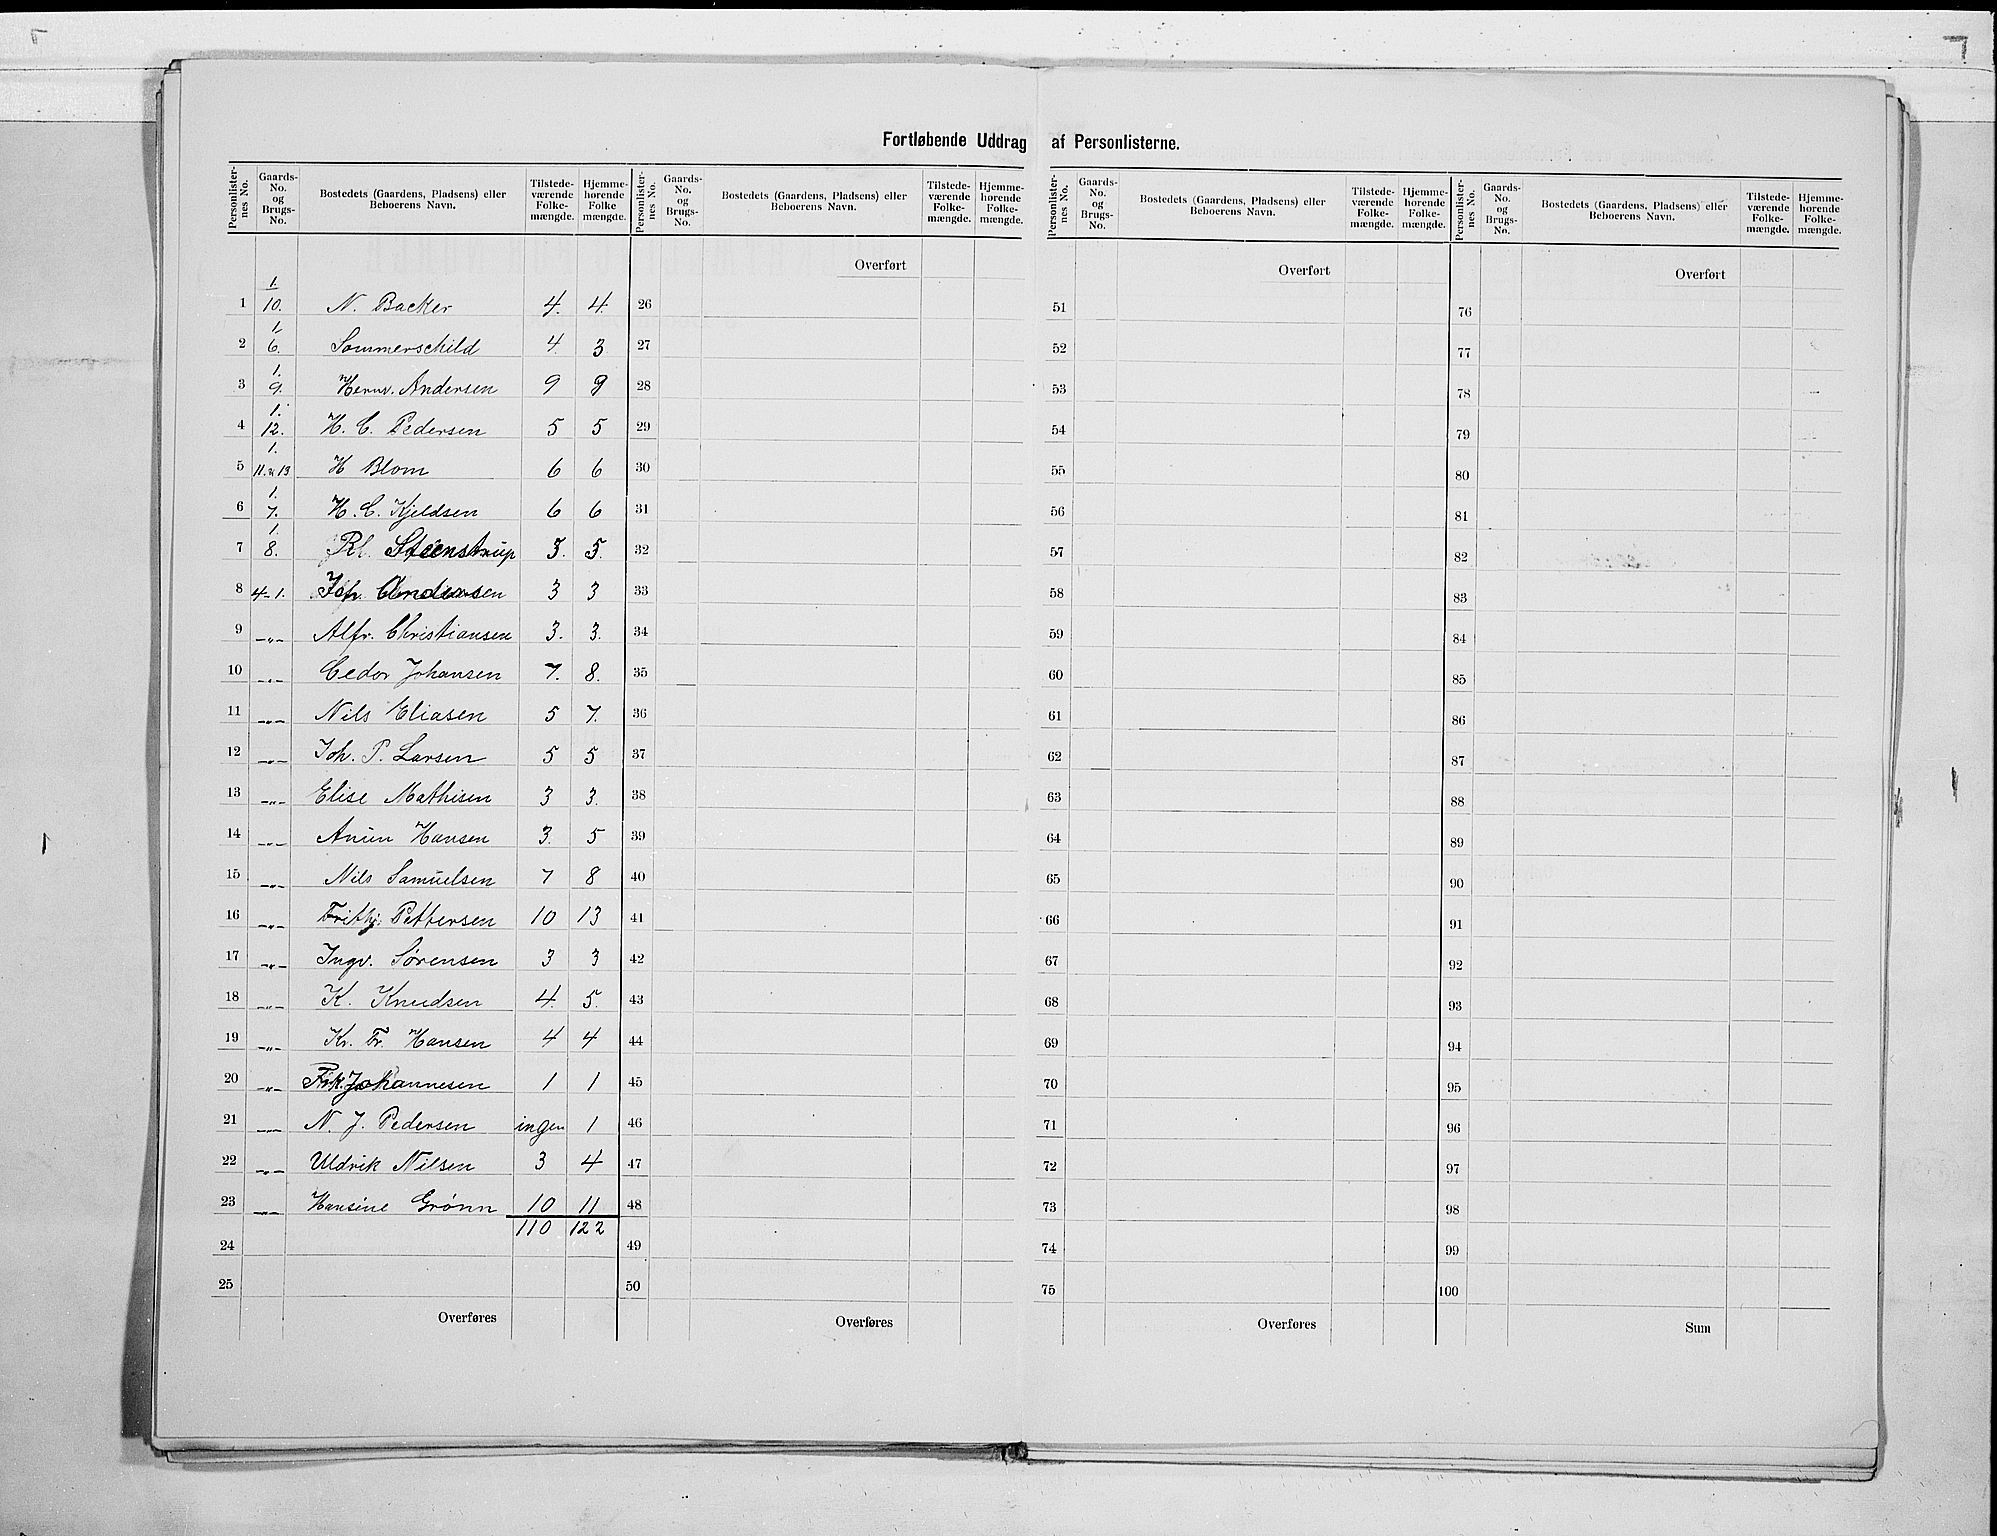 Fortløbende Uddrag af Personlisterne.
Personlisternes No. | Gaards-No. og Brugs-No. | Bostedets (Gaardens, Pladsens) eller Beboerens Navn. | Tilstedeværende Folkemængde. | Hjemmehørende Folkemængde. | Personlisternes No. | Gaards-No. og Brugs-No. | Bostedets (Gaardens, Pladsens) eller Beboerens Navn. | Tilstedeværende Folkemængde. | Hjemmehørende Folkemængde. | Personlisternes No. | Gaards-No. og Brugs-No. | Bostedets (Gaardens, Pladsens) eller Beboerens Navn. | Tilstedeværende Folkemængde. | Hjemmehørende Folkemængde. | Personlisternes No. | Gaards-No. og Brugs-No. | Bostedets (Gaardens, Pladsens) eller Beboerens Navn. | Tilstedeværende Folkemængde. | Hjemmehørende Folkemængde.
Overført Overført Overført
1 1. 10. N. Backer 4. 4. 26 51 76
2 1. 6. Sommerschild 4. 3 27 52 77
3 1. 9. Herm. Andersen 9 9 28 53 78
4 1. 12. H. C. Pedersen 5 5 29 54 79
5 1. 11. & 13 H Blom 6 6 30 55 80
6 1. 7. H. C. Kjeldsen 6 6 31 56 81
7 1. 8. Steenstrup 5. 32 57 82
8 4-1. Joh. Andersen 3 3 33 58 83
9 -"- Alfr. Christiansen 3. 3. 34 59 84
10 -"- Johansen 7. 8. 35 60 85
11 -"- Nils Eliasen 5 7. 36 61 86
12 -"- Joh. P. Larsen 5 5 37 62 87
13 -"- Elise Mathisen 3 3. 38 63 88
14 -"- Hansen 3. 5 39 64 89
15 -"- Nils Samuelsen 7 8 40 65 90
16 -"- Frithj. Pettersen 10 13 41 66 91
17 -"- Ingv. Sørensen 3 3 42 67 92
18 -"- K. Knudsen 4. 5. 43 68 93
19 -"- Kr. Fr. Hansen 4 4 44 69 94
20 -"- Johannesen 1 1 45 70 95
21 -"- N. J. Pedersen ingen 1 46 71 96
22 -"- Uldrik Nilsen 3 4 47 72 97
23 -"- Hansine Grønn 10 11 48 73 98
110 122
24 49 74 99
25 50 75 100
Overføres Overføres Overføres Sum